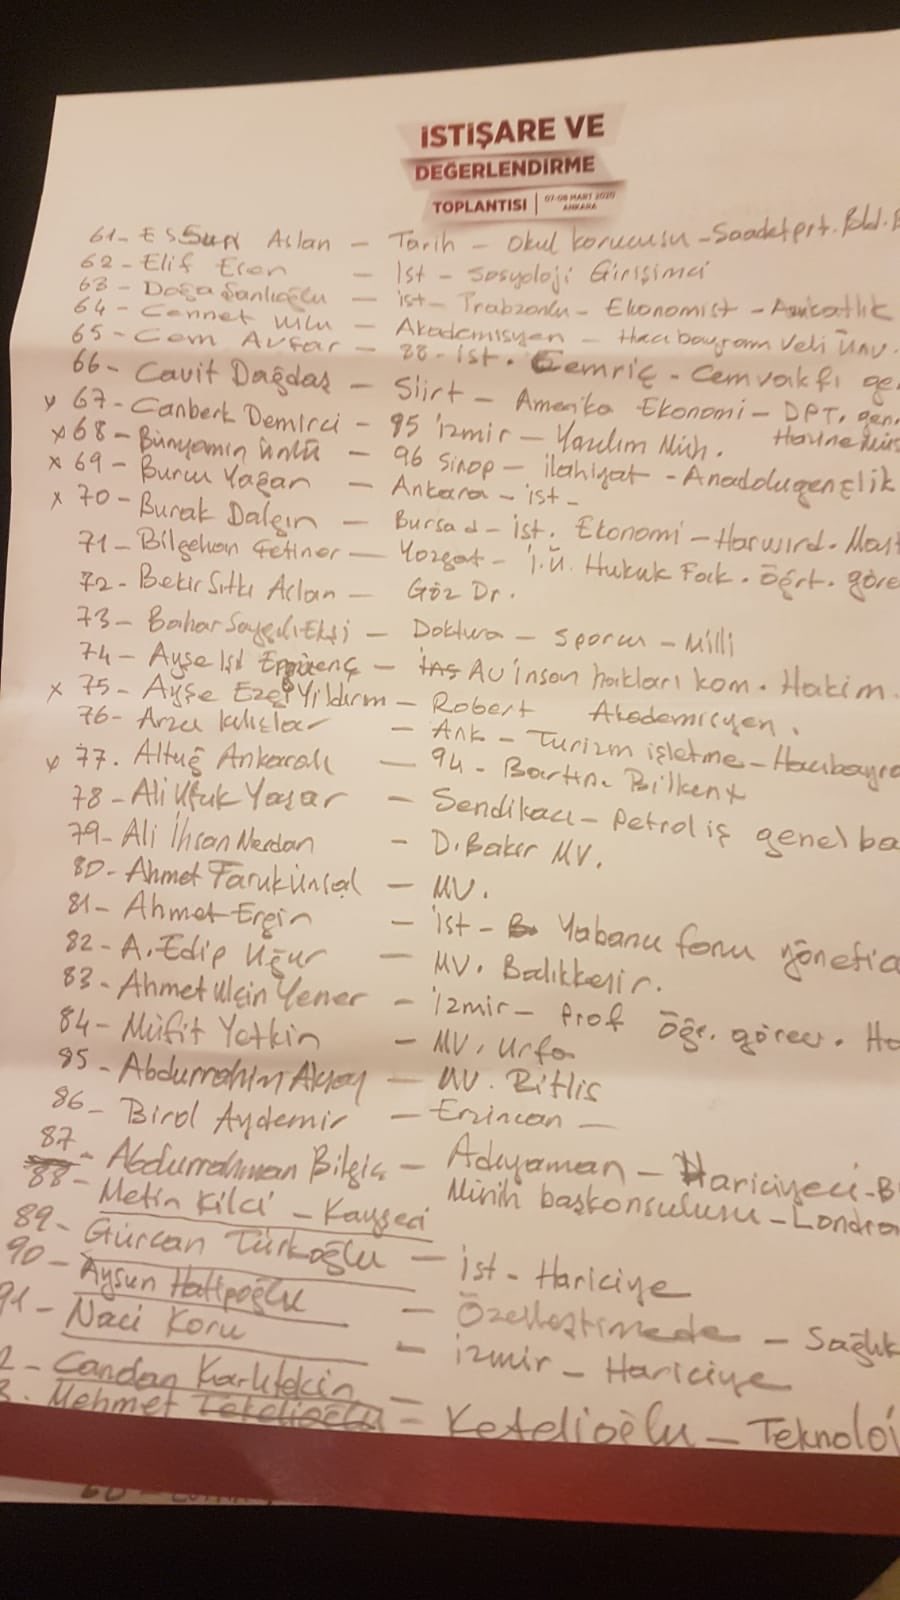 İSTİŞARE VE
DEĞERLENDİRME
TOPLANTISI | 07-08 MART 2020
ANKARA
61- Aslan - Tarih - Okul korucusu - Saadetprt. Bld. B
62- Elif Esen - İst - Sosyoloji Girişimci
63- Doğa Şanlıoğlu - ist - Trabzonlu - Ekonomist - Avukatlık
64- Cennet Uslu - Akademisyen - Hacıbayram Veli Ünv.
65- Cem Avşar - 88 - İst. Cemriç - Cem vakfı ge
66- Cavit Dağdaş - Siirt - Amerika Ekonomi - DPT. gen.
x 67- Canberk Demirci - 95 İzmir - Yazılım Müh. Hazine
x 68- Bünyamin Ünlü - 96 Sinop - ilahiyat - Anadolugençlik
x 69- Burcu Yağan - Ankara - ist -
x 70- Burak Dalgın - Bursa d - ist. Ekonomi - Harwırd. Mast
71- Bilgehan Çetiner - Yozgat - İ.Ü. Hukuk Fak. Öğrt. göre
72- Bekir Sıtkı Aslan - Göz Dr.
73- Bahar Saygılı Ekşi - Doktora - Sporcu - Milli
74- Ayşe Işıl - Av insan hakları kom. Hakim.
x 75- Ayşe Ezel Yıldırım - Robert Akademisyen.
76- Arzu Kılıçlar - Ank - Turizm işletme - Hacıbayra
x 77. Altuğ Ankaralı - 94 - Bartın. Bilkent
78- Ali Ufuk Yaşar - Sendikacı - Petrol iş genel ba
79- Ali İhsan Merdan - D. Bakır MV.
80- Ahmet Faruk Ünsal - MV.
81- Ahmet Ergin - ist - Yabancı fonu yönetic
82- A. Edip Uğur - MV. Balıkkesir.
83- Ahmet Ulçin Yener - İzmir - Prof Öğr. görev. Ha
84- Müfit Yetkin - MV. Urfa
85- Abdurrahim Aksoy - MV. Bitlis
86- Birol Aydemir - Erzincan -
87- Abdurrahman Bilgiç - Adıyaman - Hariciyeci - B
Münih başkonsulusu - Londra
88- Metin Kilci - Kayseri
89- Gürcan Türkoğlu - İst - Hariciye
90- Aysun Hatipoğlu - Özelleştirmede - Sağlık
91- Naci Koru - İzmir - Hariciye
2- Candan Karlıtekin -
3. Mehmet = Ketelioğlu - Teknoloji